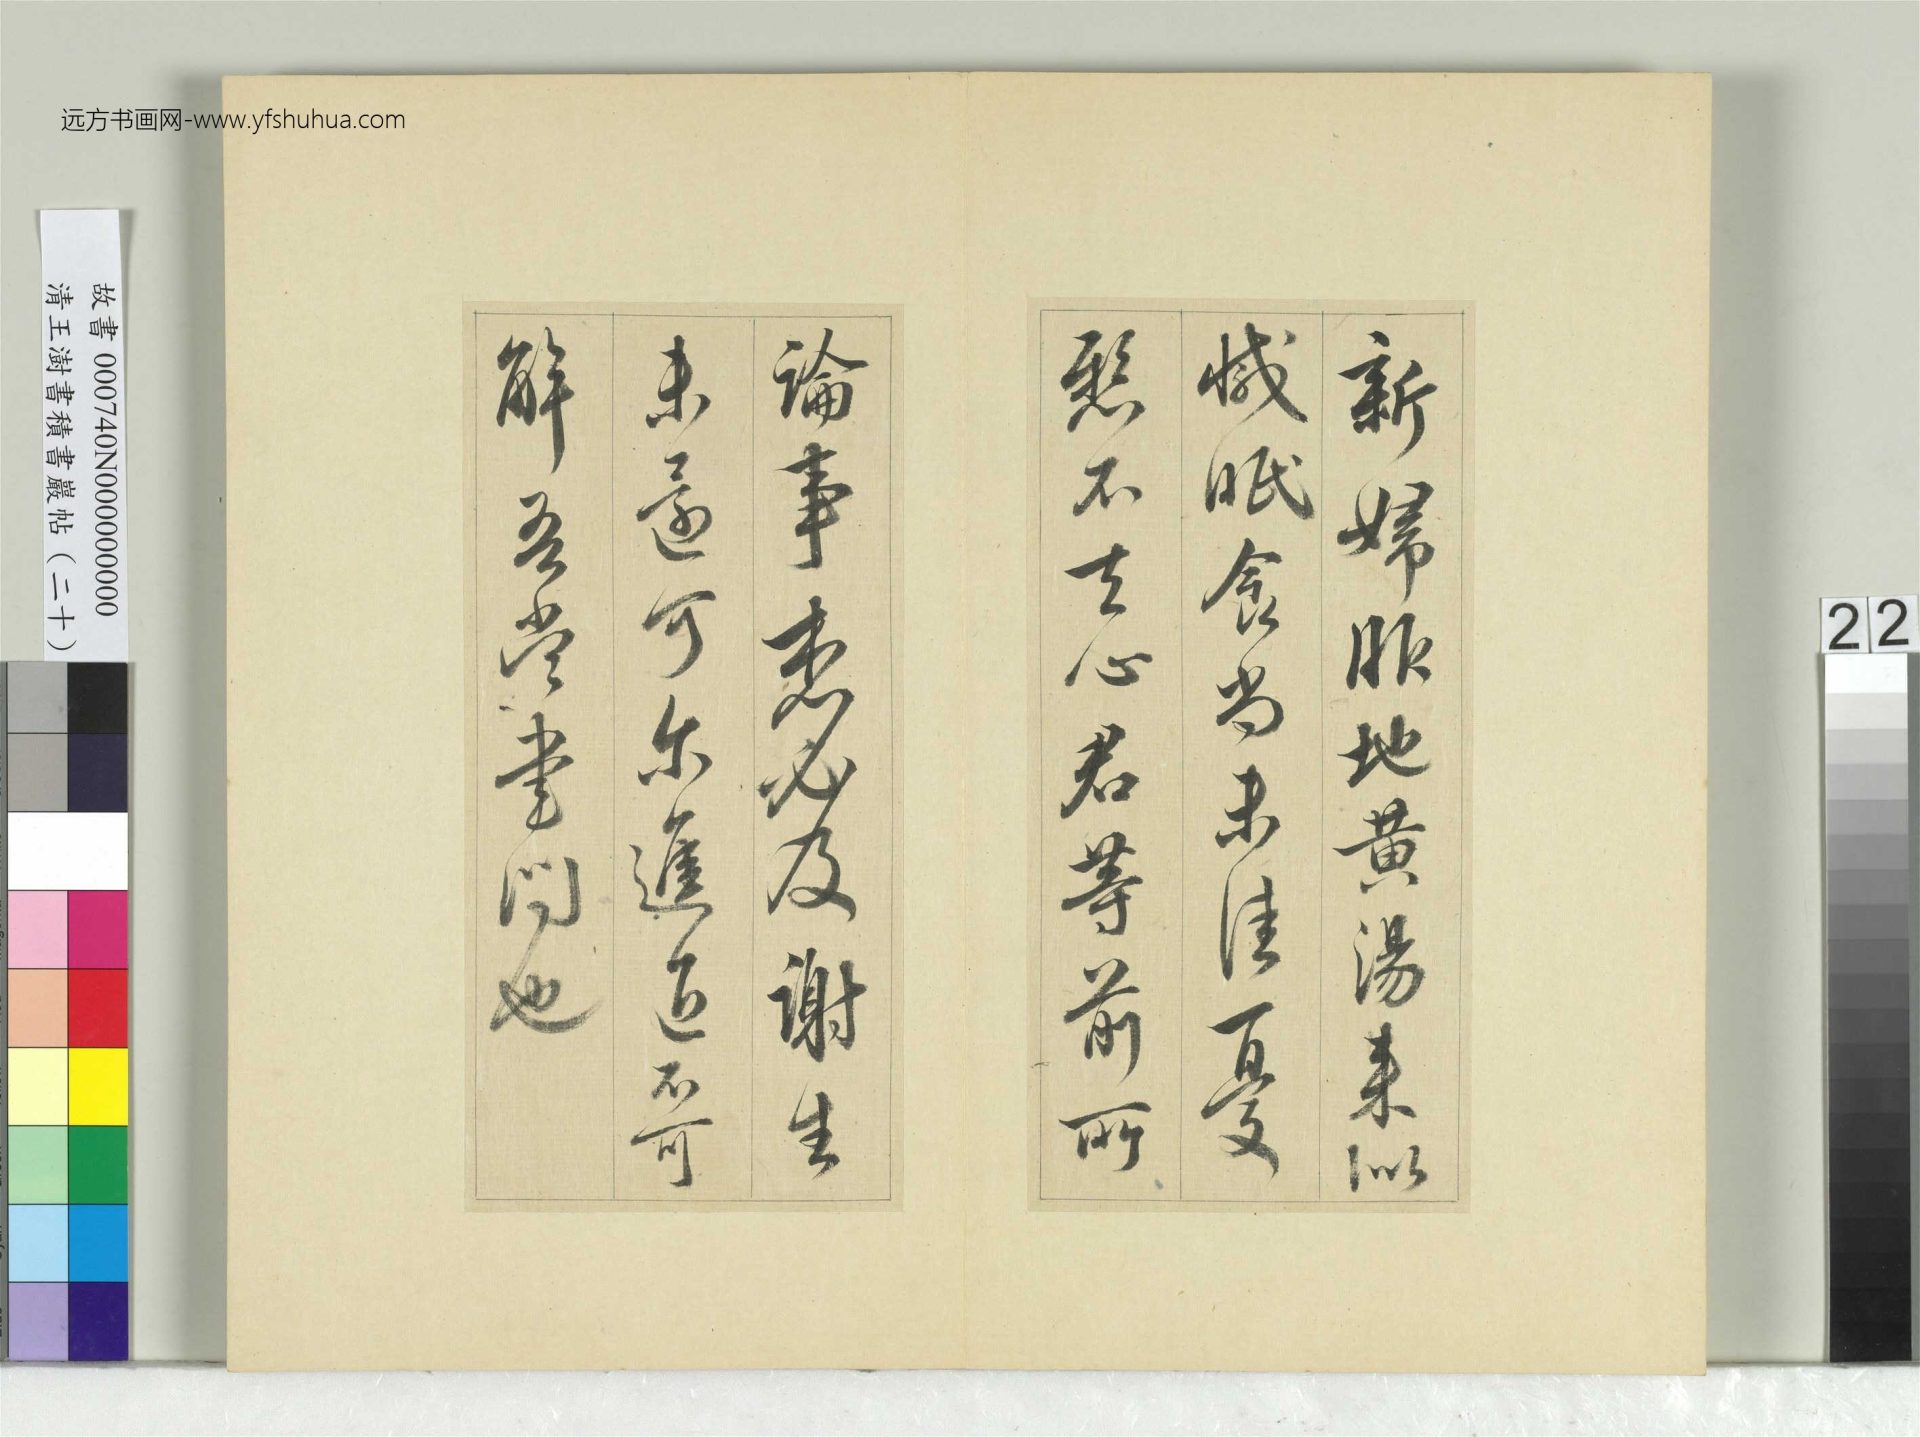 远方书画网-www.yfshuhua.com
故書 000740N000000000
清王澍書積書巖帖（二十）
22
新婦服地黄湯来似
憾眠食尚未佳憂
懸不去心君等前所
論事想必及謝生
未還可尔進退不可
解吾當書問也